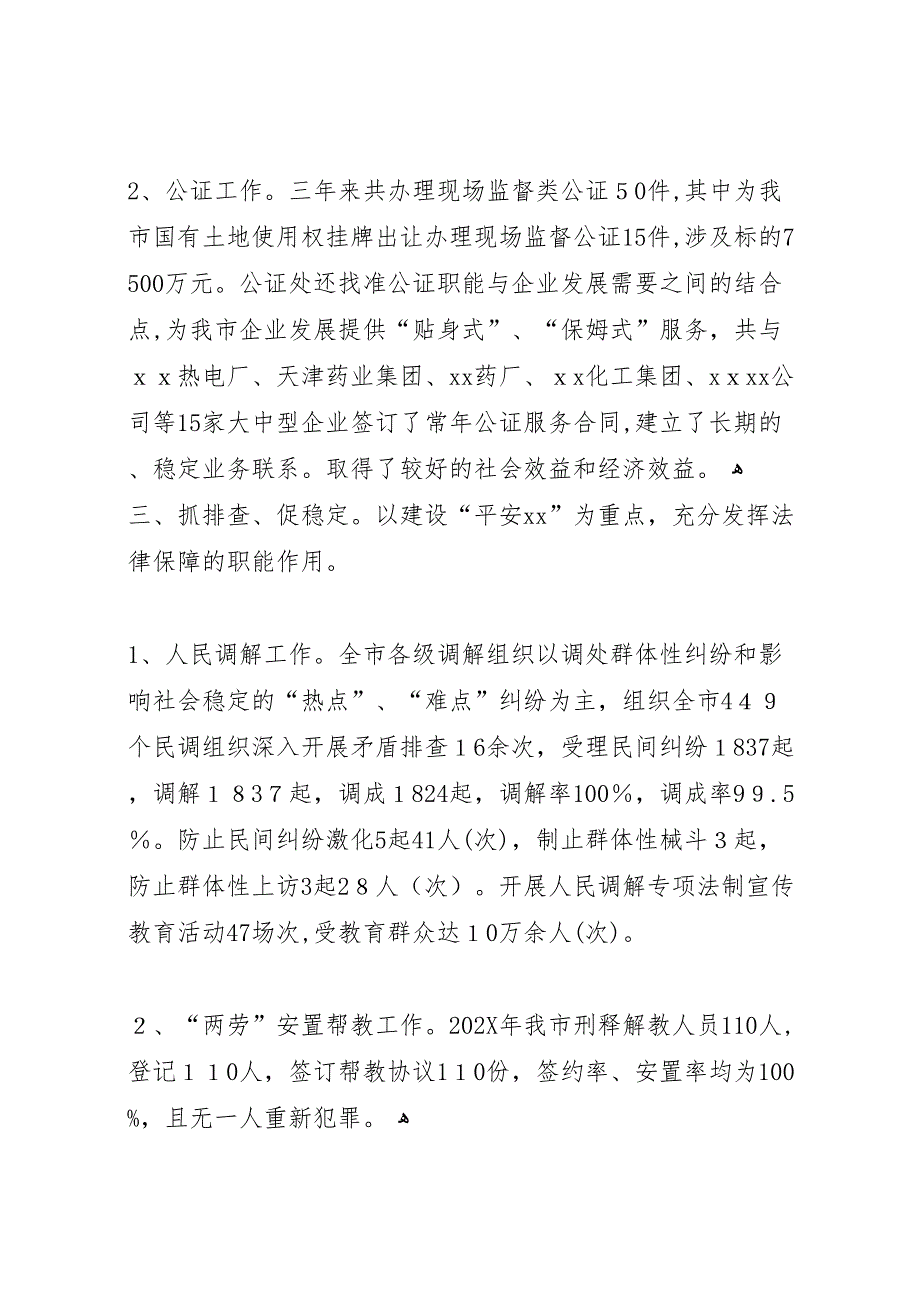 2、公证工作。三年来共办理现场监督类公证５0件,其中为我
市国有土地使用权挂牌出让办理现场监督公证15件,涉及标的7
500万元。公证处还找准公证职能与企业发展需要之间的结合
点,为我市企业发展提供“贴身式”、“保姆式”服务，共与
ｘｘ热电厂、天津药业集团、xx药厂、ｘx化工集团、xｘxx公
司等15家大中型企业签订了常年公证服务合同,建立了长期的
、稳定业务联系。取得了较好的社会效益和经济效益。 ﻫ
三、抓排查、促稳定。以建设“平安xx”为重点，充分发挥法
律保障的职能作用。
1、人民调解工作。全市各级调解组织以调处群体性纠纷和影
响社会稳定的“热点”、“难点”纠纷为主，组织全市4４９
个民调组织深入开展矛盾排查１6余次，受理民间纠纷１837起
，调解１８3７起，调成１824起，调解率100％，调成率９9.5
％。防止民间纠纷激化5起41人(次)，制止群体性械斗３起，
防止群体性上访3起2８人（次）。开展人民调解专项法制宣传
教育活动47场次,受教育群众达１0万余人(次)。
２、“两劳”安置帮教工作。202X年我市刑释解教人员110人,
登记１１0人，签订帮教协议1１0份，签约率、安置率均为100
%，且无一人重新犯罪。 ﻫ